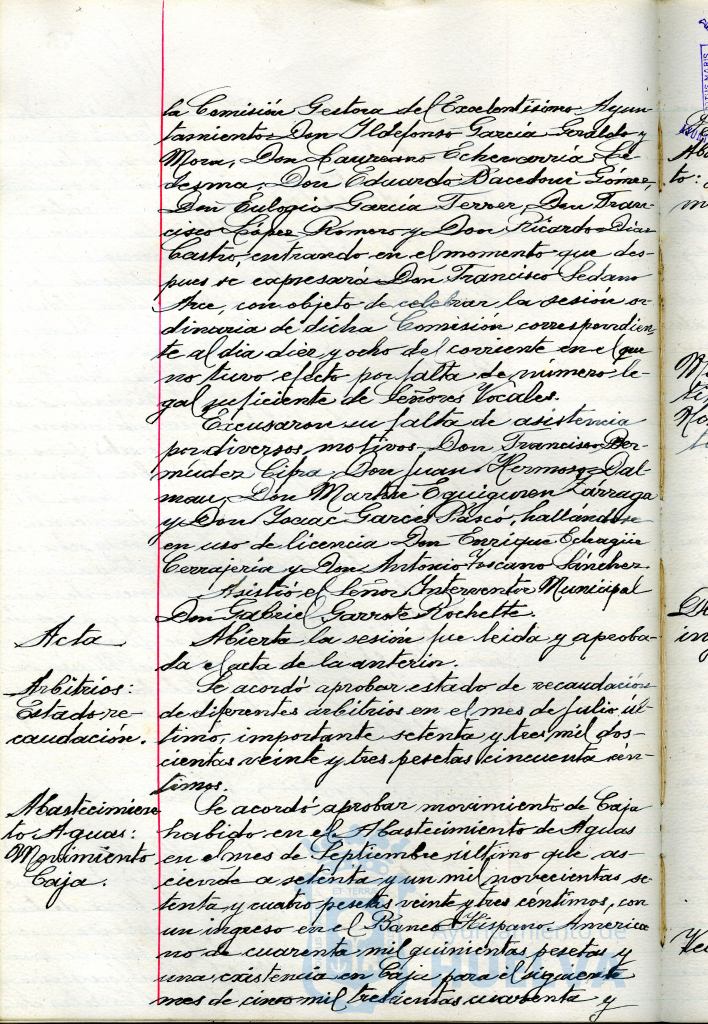 la Comisión Gestora del Excelentísimo Ayun-
tamiento: Don Ildefonso García Geraldo y
Mora, Don Laureano Echevarría Le-
desma, Don Eduardo Bacedoni Gómez,
Don Eulogio García Ferrer, Don Fran-
cisco López Romero y Don Ricardo Díaz
Castro, entrando en el momento que des-
pues se expresará Don Francisco Sedano
Arce, con objeto de celebrar la sesión or-
dinaria de dicha Comisión correspondien-
te al dia diez y ocho del corriente en el que
no tuvo efecto por falta de número le-
gal suficiente de Señores Vocales.
Excusaron su falta de asistencia
por diversos motivos Don Francisco Ber-
múdez Cifra, Don Juan Hermoso Dal-
mau, Don Martín Eguiguren Zárraga
y Don Isaac Garcés Pascó, hallándose
en uso de licencia Don Enrique Echagüe
Cerrajeria y Don Antonio Toscano Sánchez.
Asistió el Señor Interventor Municipal
Don Gabriel Garrote Rochette.
Acta
Abierta la sesión fue leida y aproba-
da el acta de la anterior.
Arbitrios:
Estado re-
caudación.
Se acordó aprobar estado de recaudación
de diferentes arbitrios en el mes de Julio úl-
timo, importante setenta y tres mil dos-
cientas veinte y tres pesetas cincuenta cén-
timos.
Abastecimien-
to Aguas:
Movimiento
Caja.
Se acordó aprobar movimiento de Caja
habido en el Abastecimiento de Aguas
en el mes de Septiembre último que as-
ciende a setenta y un mil novecientas se-
tenta y cuatro pesetas veinte y tres céntimos, con
un ingreso en el Banco Hispano America-
no de cuarenta mil quinientas pesetas y
una existencia en Caja para el siguiente
mes de cinco mil trescientas cuarenta y
Ayuntamiento de
HUELVA